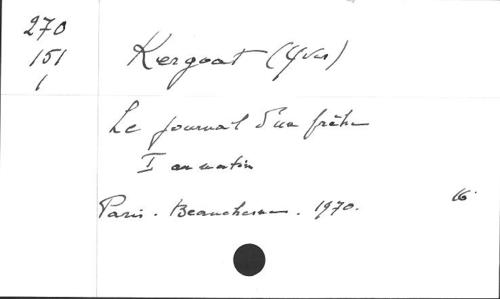 270
151
1
Kergoat (Yves)
Le journal d'un prêtre
I au matin
Paris. Beauchesne. 1970. 16°